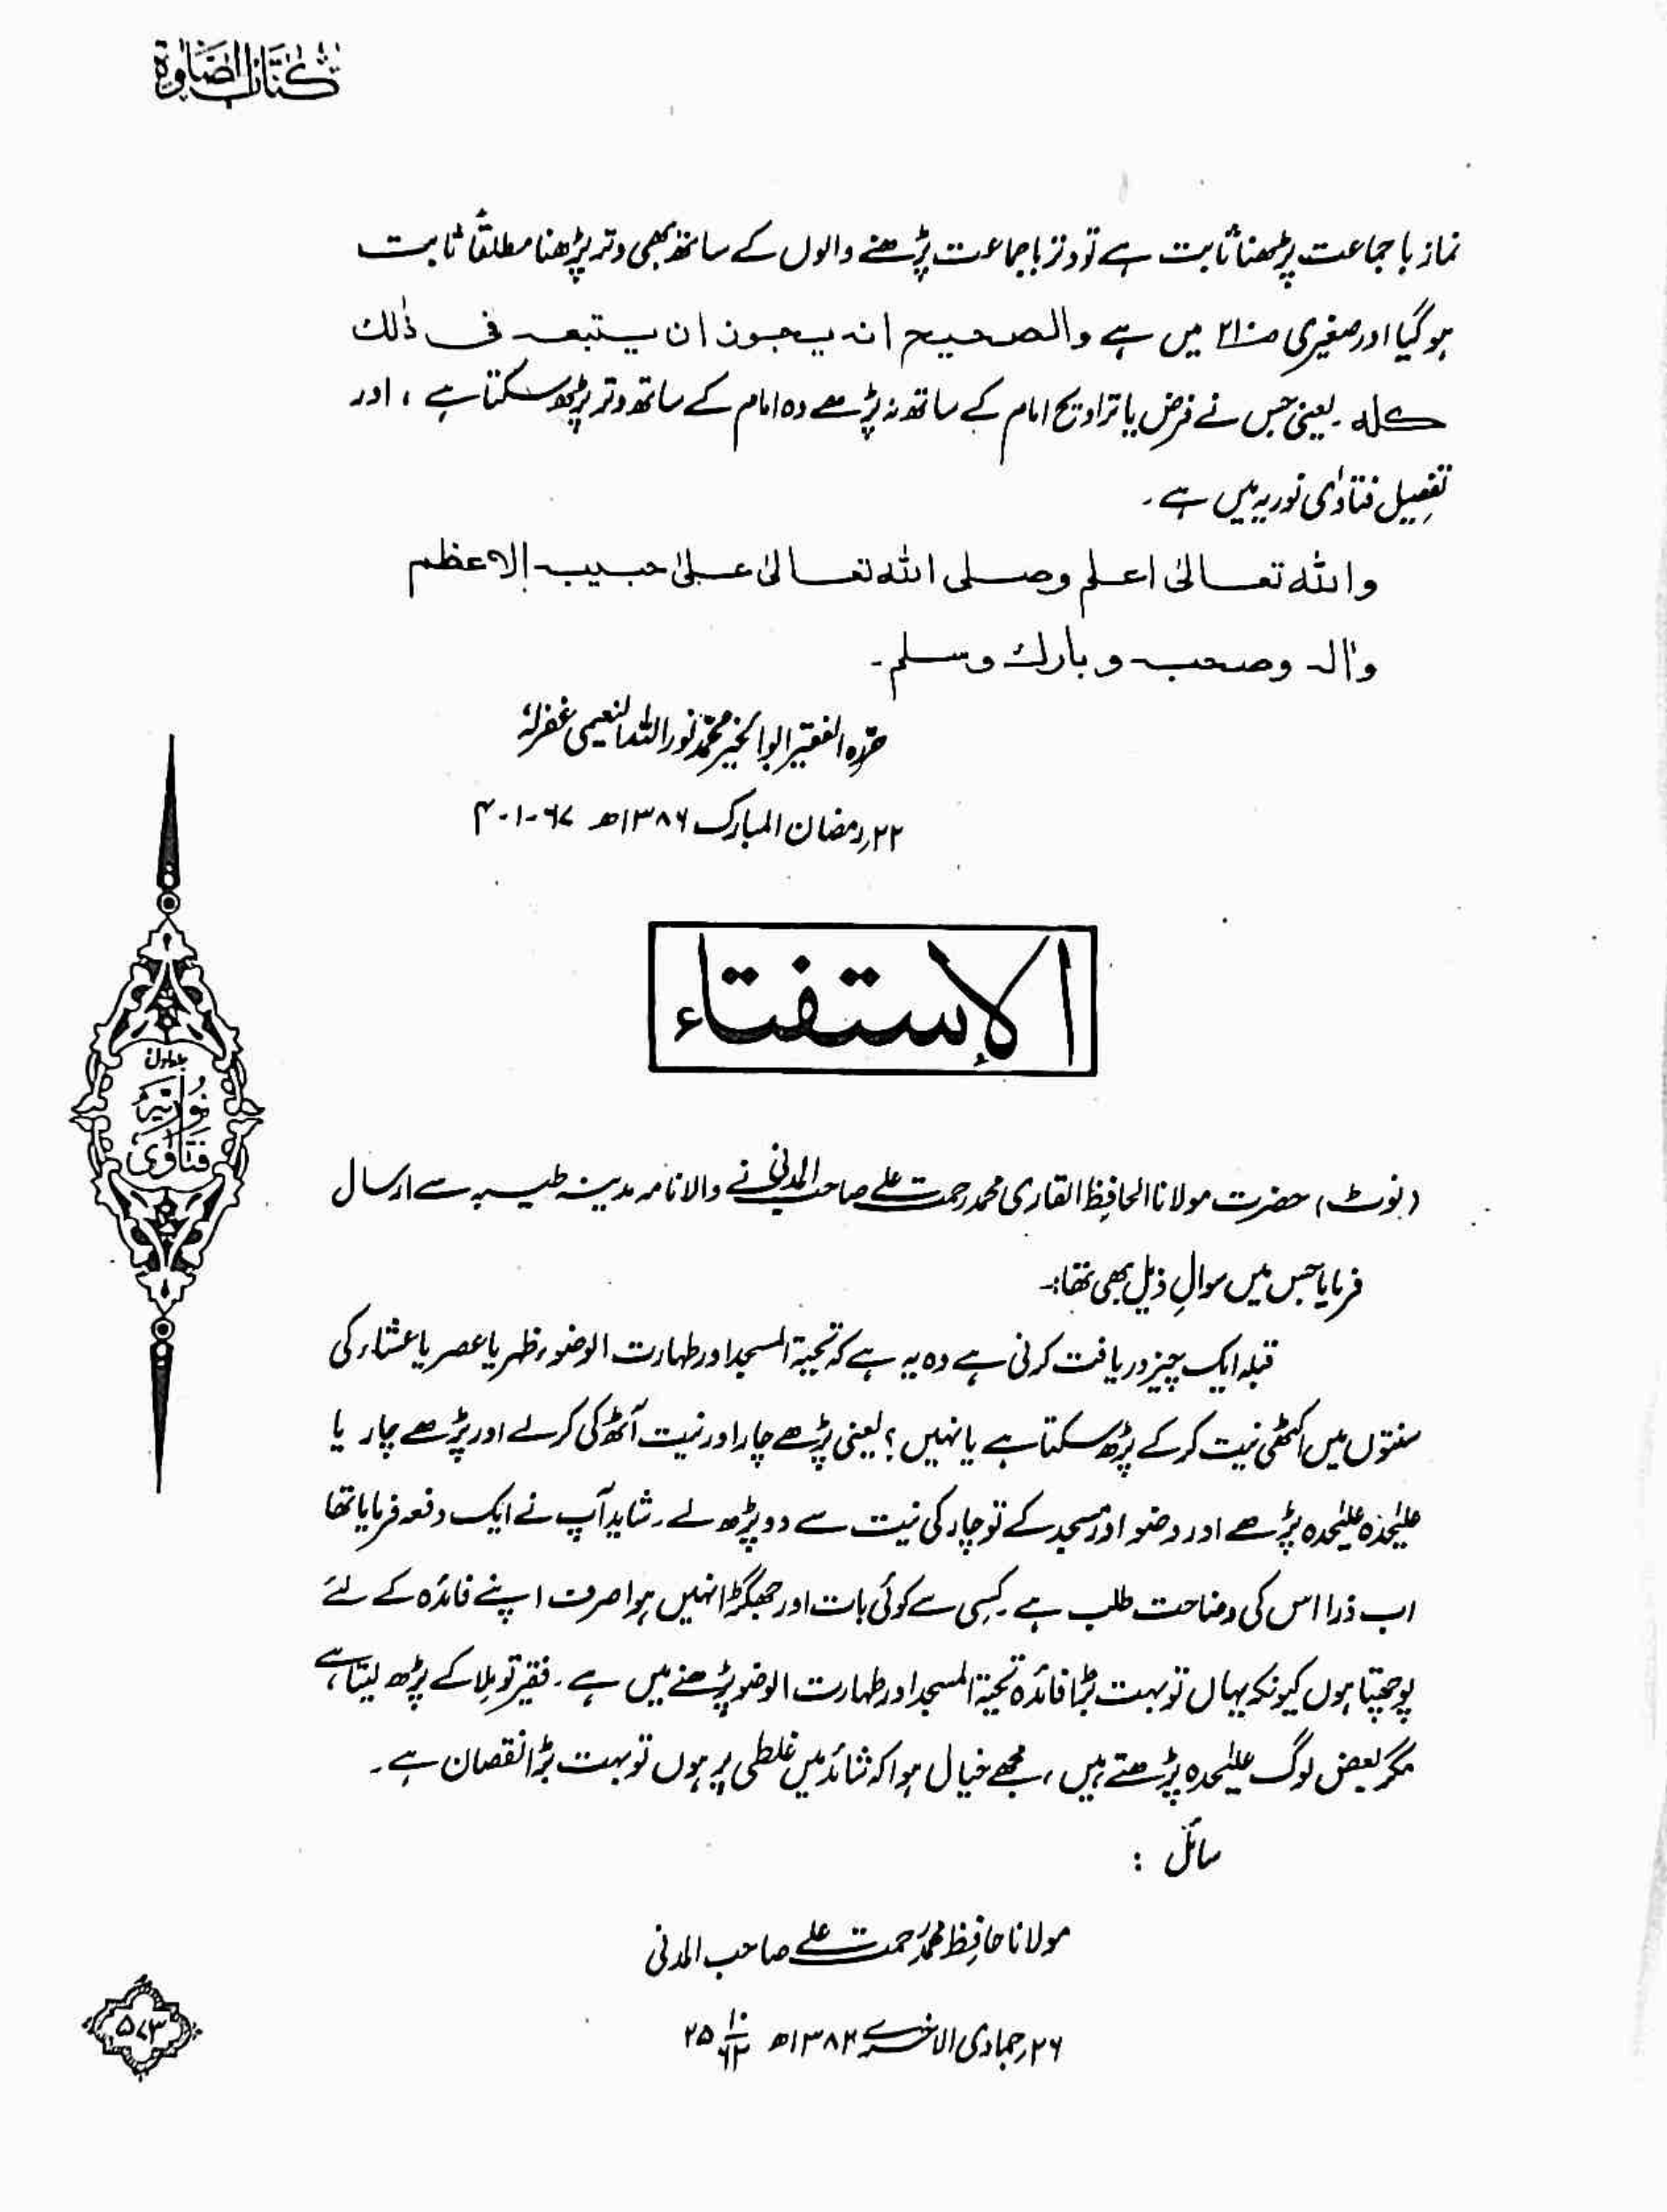 كتاب الصلوة
نماز با جماعت پڑھنا ثابت ہے تو وتر باجماعت پڑھنے والوں کے ساتھ بھی وتر پڑھنا مطلقاً ثابت
ہو گیا اور صغیری صـ۲۱۰ میں ہے والصحیح انہ یجوز ان یتبعہ فی ذٰلك
کلہ ۔ یعنی جس نے فرض یا تراویح امام کے ساتھ نہ پڑھے وہ امام کے ساتھ وتر پڑھ سکتا ہے ، اور
تفصیل فتاوٰی نوریہ میں ہے ۔
واللہ تعالیٰ اعلم وصلی اللہ تعالیٰ علیٰ حبیبہ الاعظم
واٰلہ وصحبہ وبارك وسلم ۔
حررہ الفقیر ابوالخیر محمد نور اللہ النعیمی غفرلہٗ
۲۲ رمضان المبارک ۱۳۸۶ھ ۶۷-۱-۴
الاستفتاء
جلد اول
نوریہ
فتاوٰی
(نوٹ) حضرت مولانا الحافظ القاری محمد رحمت علی صاحب المدنی نے والا نامہ مدینہ طیبہ سے ارسال
فرمایا جس میں سوالِ ذیل بھی تھا :۔
قبلہ ایک چیز دریافت کرنی ہے وہ یہ ہے کہ تحیۃ المسجد اور طہارت الوضوء ظہر یا عصر یا عشاء کی
سنتوں میں اکٹھی نیت کر کے پڑھ سکتا ہے یا نہیں ؟ یعنی پڑھے چار اور نیت آٹھ کی کر لے اور پڑھے چار یا
علیٰحدہ علیٰحدہ پڑھے اور وضو اور مسجد کے تو چار کی نیت سے دو پڑھ لے ۔ شاید آپ نے ایک دفعہ فرمایا تھا
اب ذرا اس کی وضاحت طلب ہے ۔ کسی سے کوئی بات اور جھگڑا نہیں ہوا صرف اپنے فائدہ کے لئے
پوچھتا ہوں کیونکہ یہاں تو بہت بڑا فائدہ تحیۃ المسجد اور طہارت الوضو پڑھنے میں ہے ۔ فقیر تو ملا کے پڑھ لیتا ہے
مگر بعض لوگ علیٰحدہ پڑھتے ہیں ، مجھے خیال ہوا کہ شائد میں غلطی پر ہوں تو بہت بڑا نقصان ہے ۔
سائل :
مولانا حافظ محمد رحمت علی صاحب المدنی
۲۶ جمادی الاخریٰ ۱۳۸۲ھ ۲۵ ۱۰/۶۲
۵۷۳